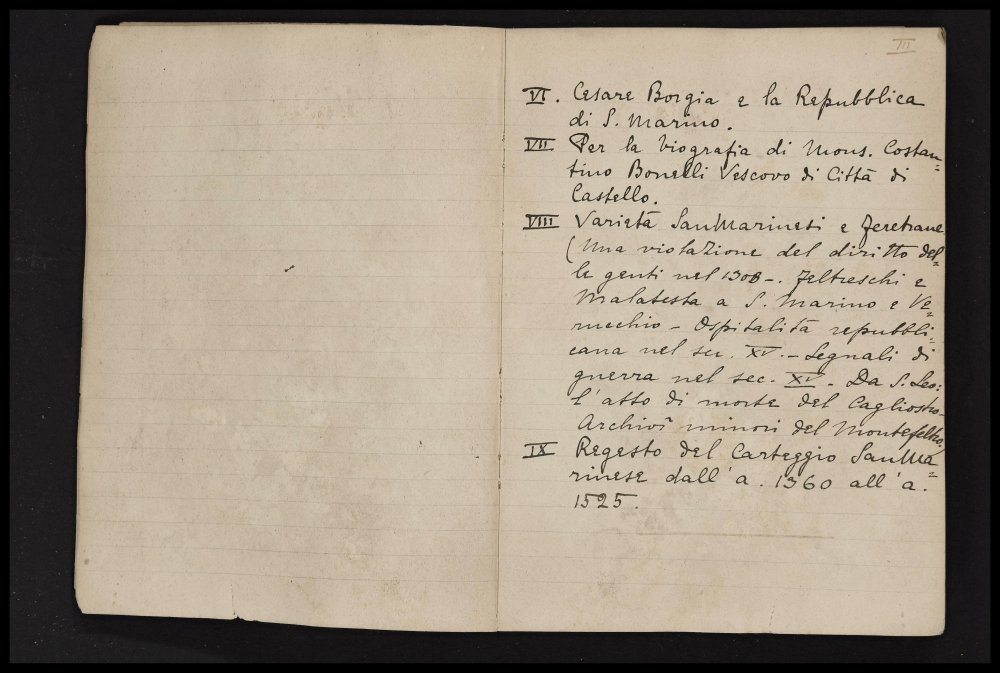 III
VI. Cesare Borgia e la Repubblica
di S. Marino.
VII Per la biografia di Mons. Costan=
tino Bonelli Vescovo di Città di
Castello.
VIII Varietà SanMarinesi e Feretrane
(Una violazione del diritto del=
le genti nel 1308 -. Feltreschi e
Malatesta a S. Marino e Ve=
rucchio - Ospitalità repubbli=
cana nel sec. XV. - Segnali di
guerra nel sec. XV - Da S. Leo:
l'atto di morte del Cagliostro-
Archivî minori del Montefeltro.
IX Regesto del Carteggio SanMa=
rinese dall'a. 1360 all'a.
1525.